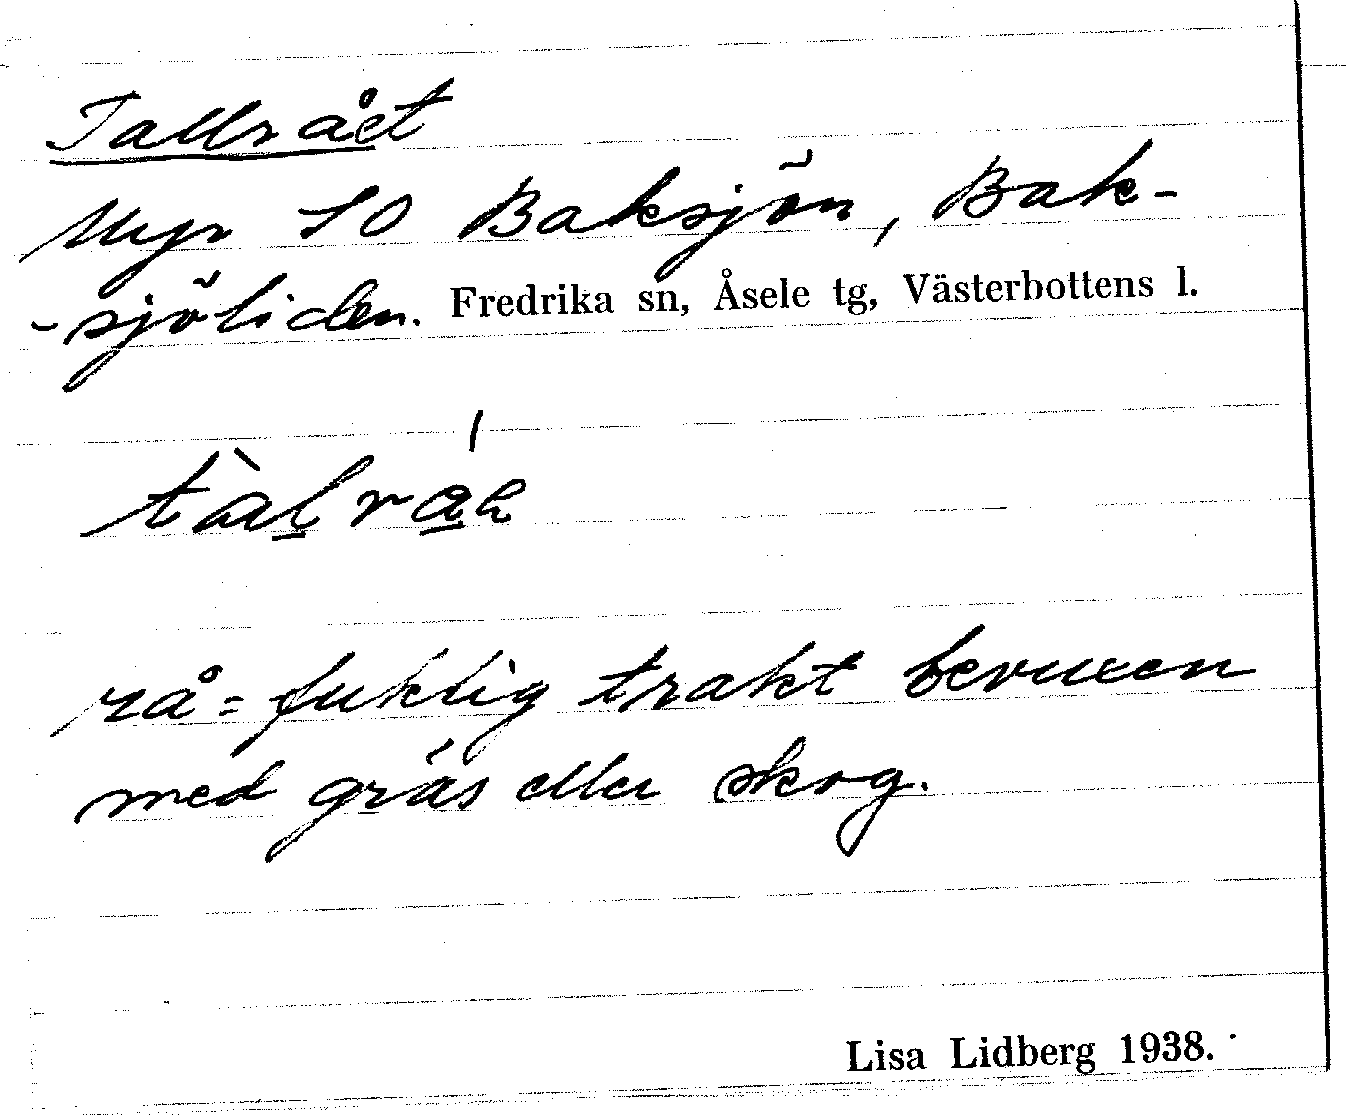 Tallrået
Myr SO Baksjön, Bak-
-sjöliden. Fredrika sn, Åsele tg, Västerbottens l.
rå = fuktig trakt bevuxen
med gräs eller skog.
Lisa Lidberg 1938.